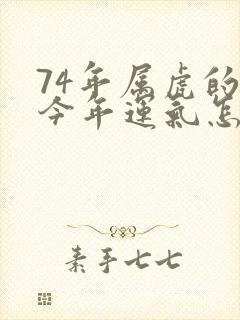 74年属虎的
今年运气怎
素手七七